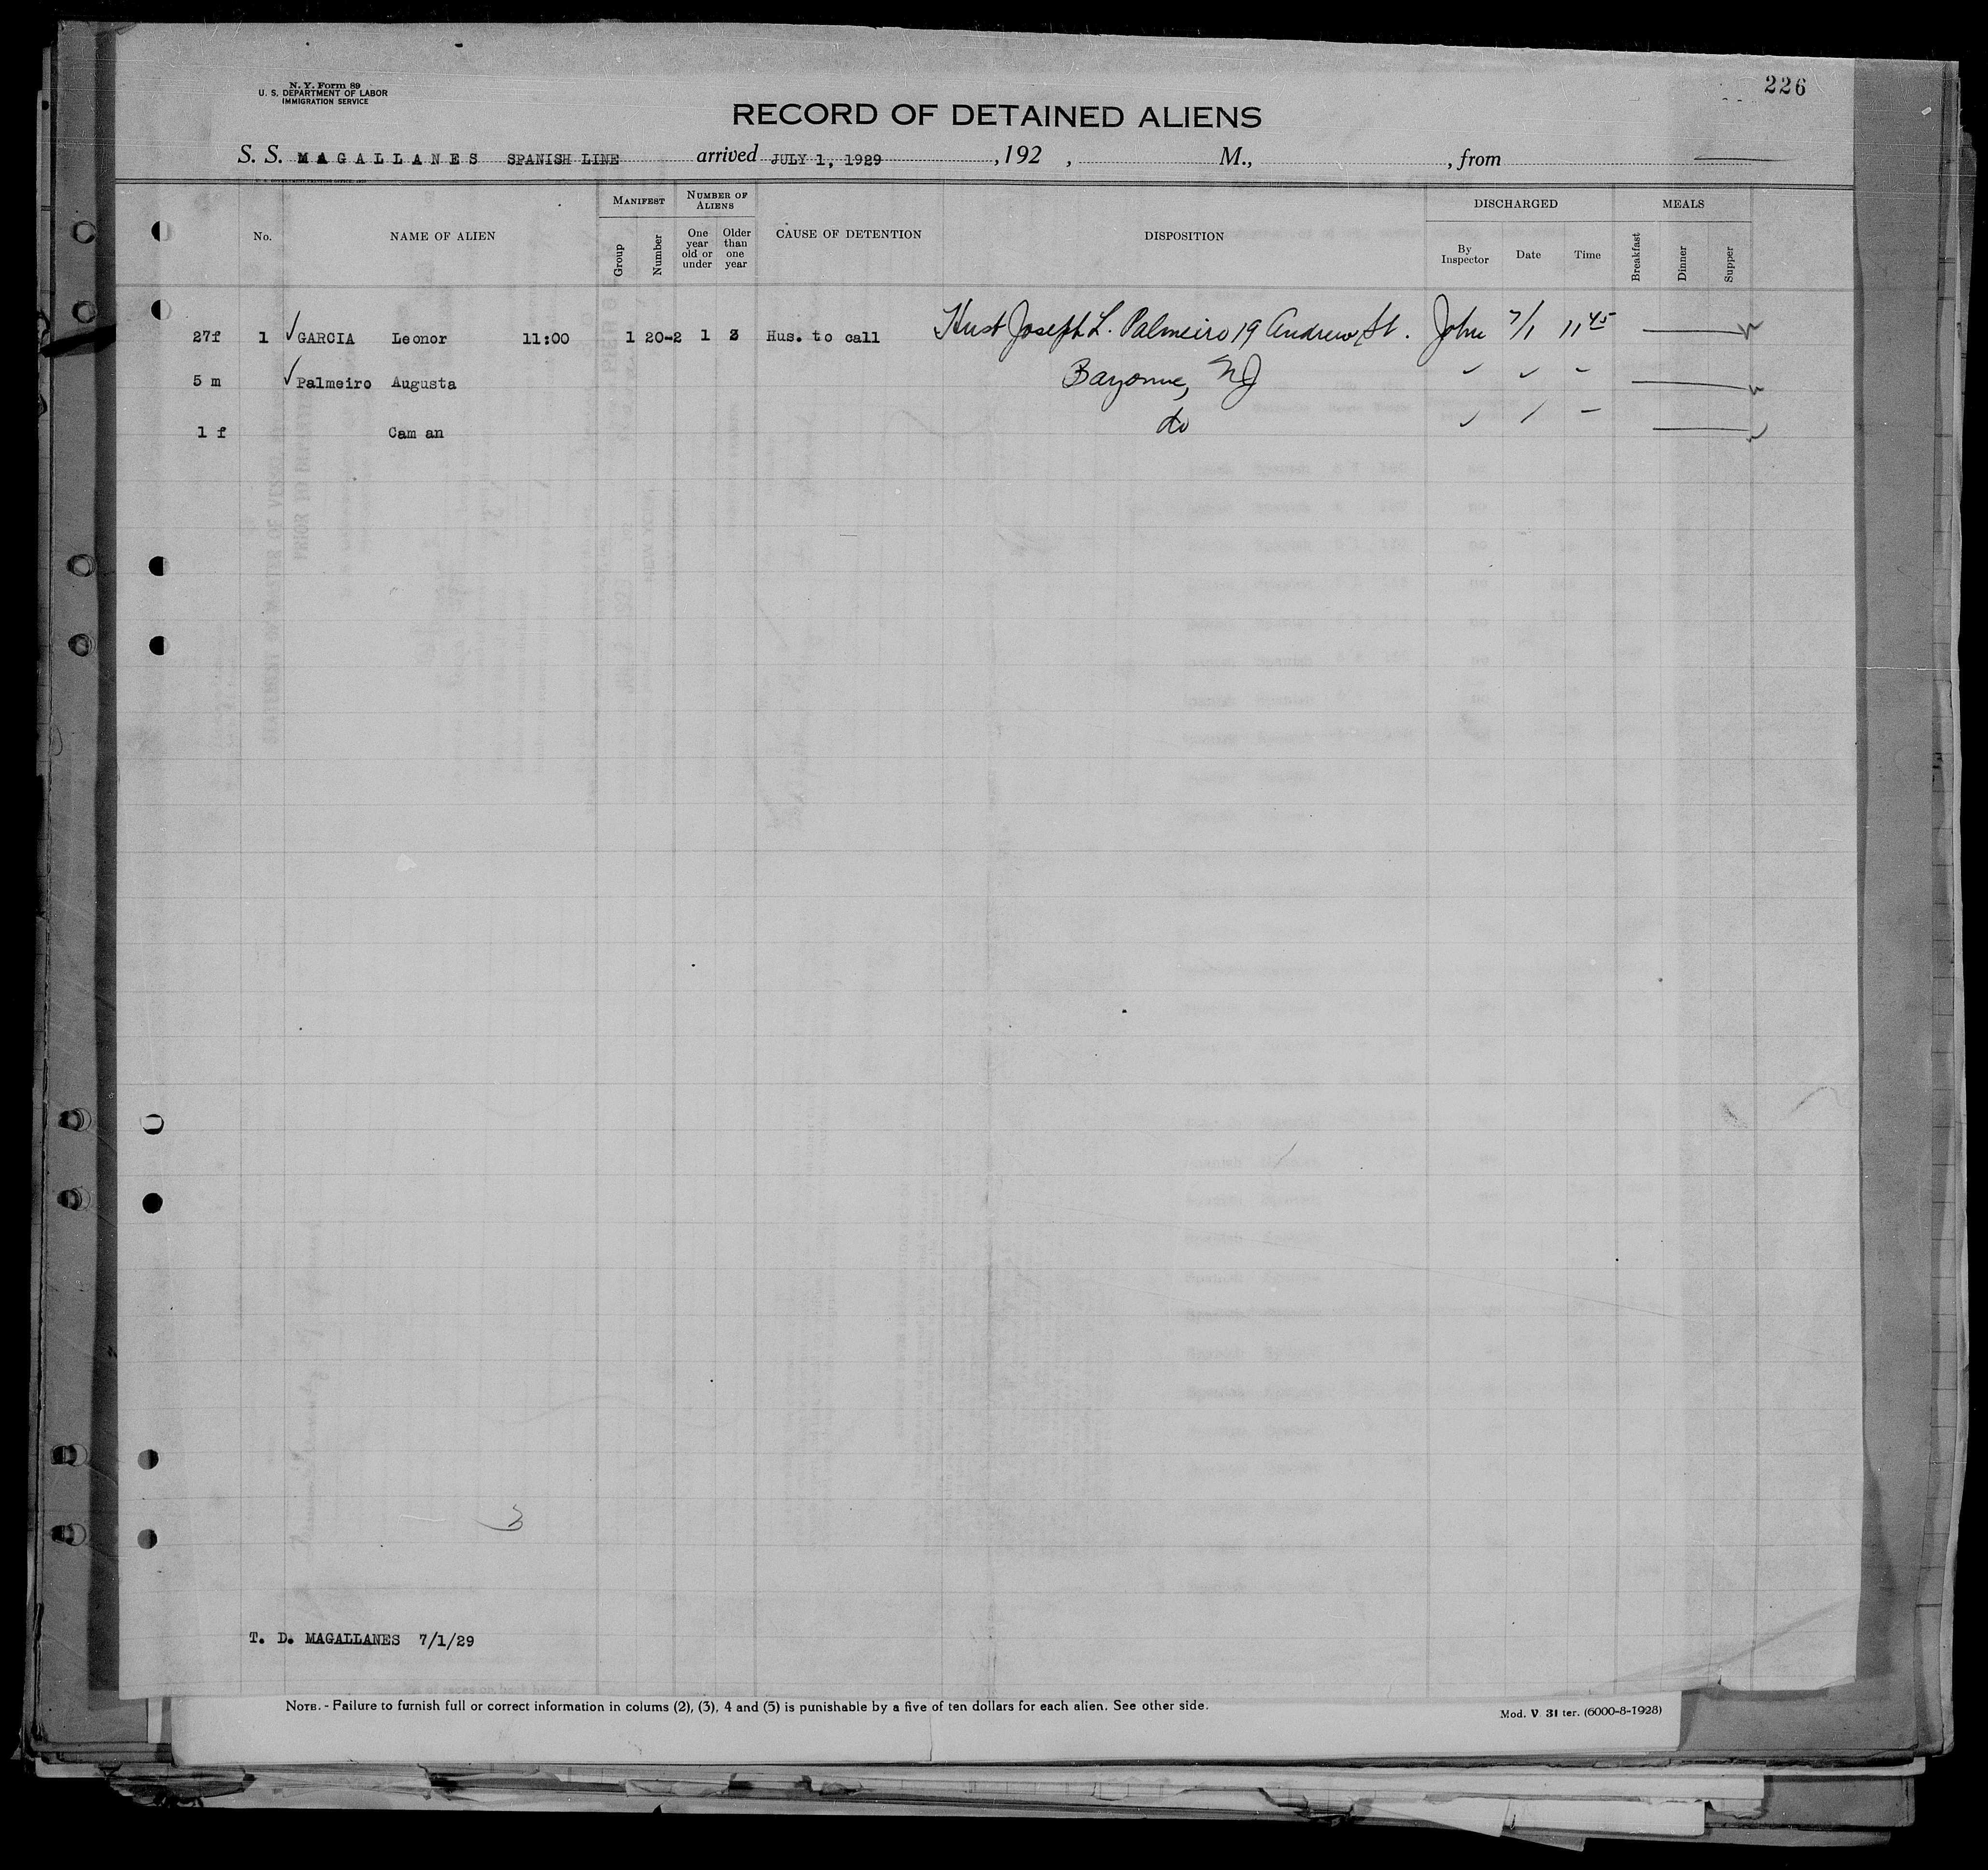 226
N. Y. Form 89
U. S. DEPARTMENT OF LABOR
IMMIGRATION SERVICE
RECORD OF DETAINED ALIENS
S. S. MAGALLANES SPANISH LINE arrived JULY 1, 1929, 192 , M., , from
MANIFEST NUMBER OF ALIENS DISCHARGED MEALS
No. NAME OF ALIEN Group Number One year old or under Older than one year CAUSE OF DETENTION DISPOSITION By Inspector Date Time Breakfast Dinner Supper
27f 1 ✓GARCIA Leonor 11:00 1 20-2 1 Hus. to call Joseph L. Palmeiro 19 Andrew St. John 7/1 11 45
5 m ✓Palmeiro Augusta Bayonne, NJ ✓ ✓ -
1 f Cam an do ✓ / -
3
T. D. MAGALLANES 7/1/29
NOTE. - Failure to furnish full or correct information in colums (2), (3), 4 and (5) is punishable by a five of ten dollars for each alien. See other side.
Mod. V. 31 ter. (6000-8-1928)